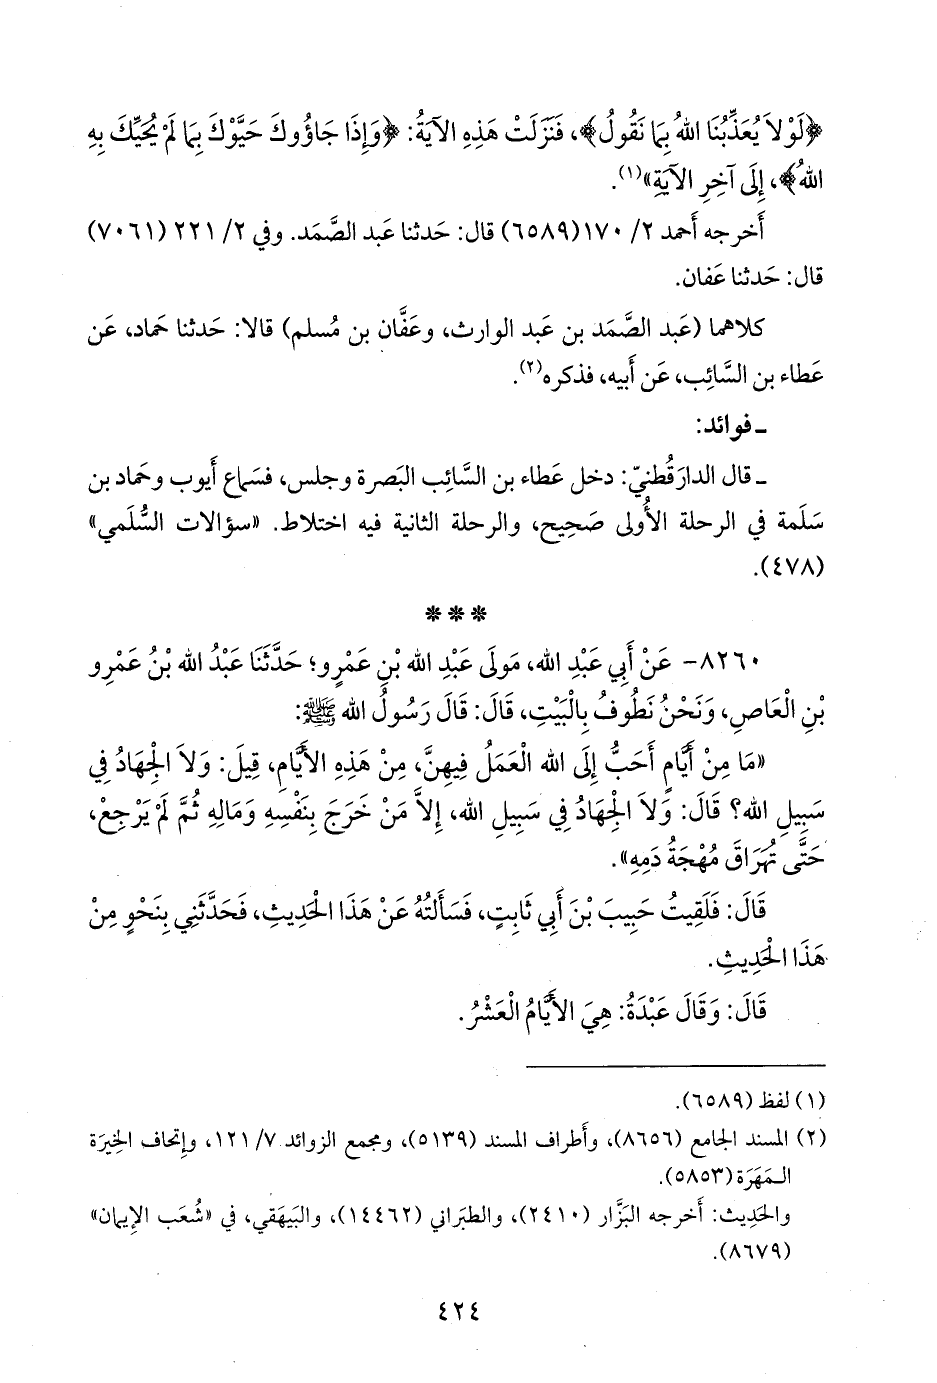 ﴿لَوْلاَ يُعَذِّبُنَا اللهُ بِمَا نَقُولُ﴾، فَنَزَلَتْ هَذِهِ الآيَةُ: ﴿وَإِذَا جَاؤُوكَ حَيَّوْكَ بِمَا لَمْ يُحَيِّكَ بِهِ
اللهُ﴾، إِلَى آخِرِ الآيَةِ»(١).
أَخرجه أَحمد ٢/ ١٧٠(٦٥٨٩) قال: حَدثنا عَبد الصَّمَد. وفي ٢/ ٢٢١ (٧٠٦١)
قال: حَدثنا عَفان.
كلاهما (عَبد الصَّمَد بن عَبد الوارث، وعَفَّان بن مُسلم) قالا: حَدثنا حماد، عَن
عَطاء بن السَّائِب، عَن أَبيه، فذكره(٢).
ـ فوائد:
ـ قال الدارَقُطنيّ: دخل عَطاء بن السَّائِب البَصرة وجلس، فسَماع أَيوب وحَماد بن
سَلَمة في الرحلة الأُولى صَحِيح، والرحلة الثانية فيه اختلاط. «سؤالات السُّلَمي»
(٤٧٨).
***
٨٢٦٠- عَنْ أَبِي عَبْدِ الله، مَولَى عَبْدِ الله بْنِ عَمْرٍو؛ حَدَّثَنَا عَبْدُ الله بْنُ عَمْرِو
بْنِ الْعَاصِ، وَنَحْنُ نَطُوفُ بِالْبَيْتِ، قَالَ: قَالَ رَسُولُ الله ﷺ:
«مَا مِنْ أَيَّامٍ أَحَبُّ إِلَى الله الْعَمَلُ فِيهِنَّ، مِنْ هَذِهِ الأَيَّامِ، قِيلَ: وَلاَ الْجِهَادُ فِي
سَبِيلِ الله؟ قَالَ: وَلاَ الْجِهَادُ فِي سَبِيلِ الله، إِلاَّ مَنْ خَرَجَ بِنَفْسِهِ وَمَالِهِ ثُمَّ لَمْ يَرْجِعْ،
حَتَّى تُهَرَاقَ مُهْجَةُ دَمِهِ».
قَالَ: فَلَقِيتُ حَبِيبَ بْنَ أَبِي ثَابِتٍ، فَسَأَلتُهُ عَنْ هَذَا الْحَدِيثِ، فَحَدَّثَنِي بِنَحْوٍ مِنْ
هَذَا الْحَدِيثِ.
قَالَ: وَقَالَ عَبْدَةُ: هِيَ الأَيَّامُ الْعَشْرُ.
(١) لفظ (٦٥٨٩).
(٢) المسند الجامع (٨٦٥٦)، وأَطراف المسند (٥١٣٩)، ومجمع الزوائد ٧/ ١٢١، وإِتحاف الخِيَرَة
المَهَرَة (٥٨٥٣).
والحَدِيث؛ أَخرجه البَزَّار (٢٤١٠)، والطبَراني (١٤٤٦٢)، والبَيهَقي، في «شُعَب الإيمان»
(٨٦٧٩).
٤٢٤